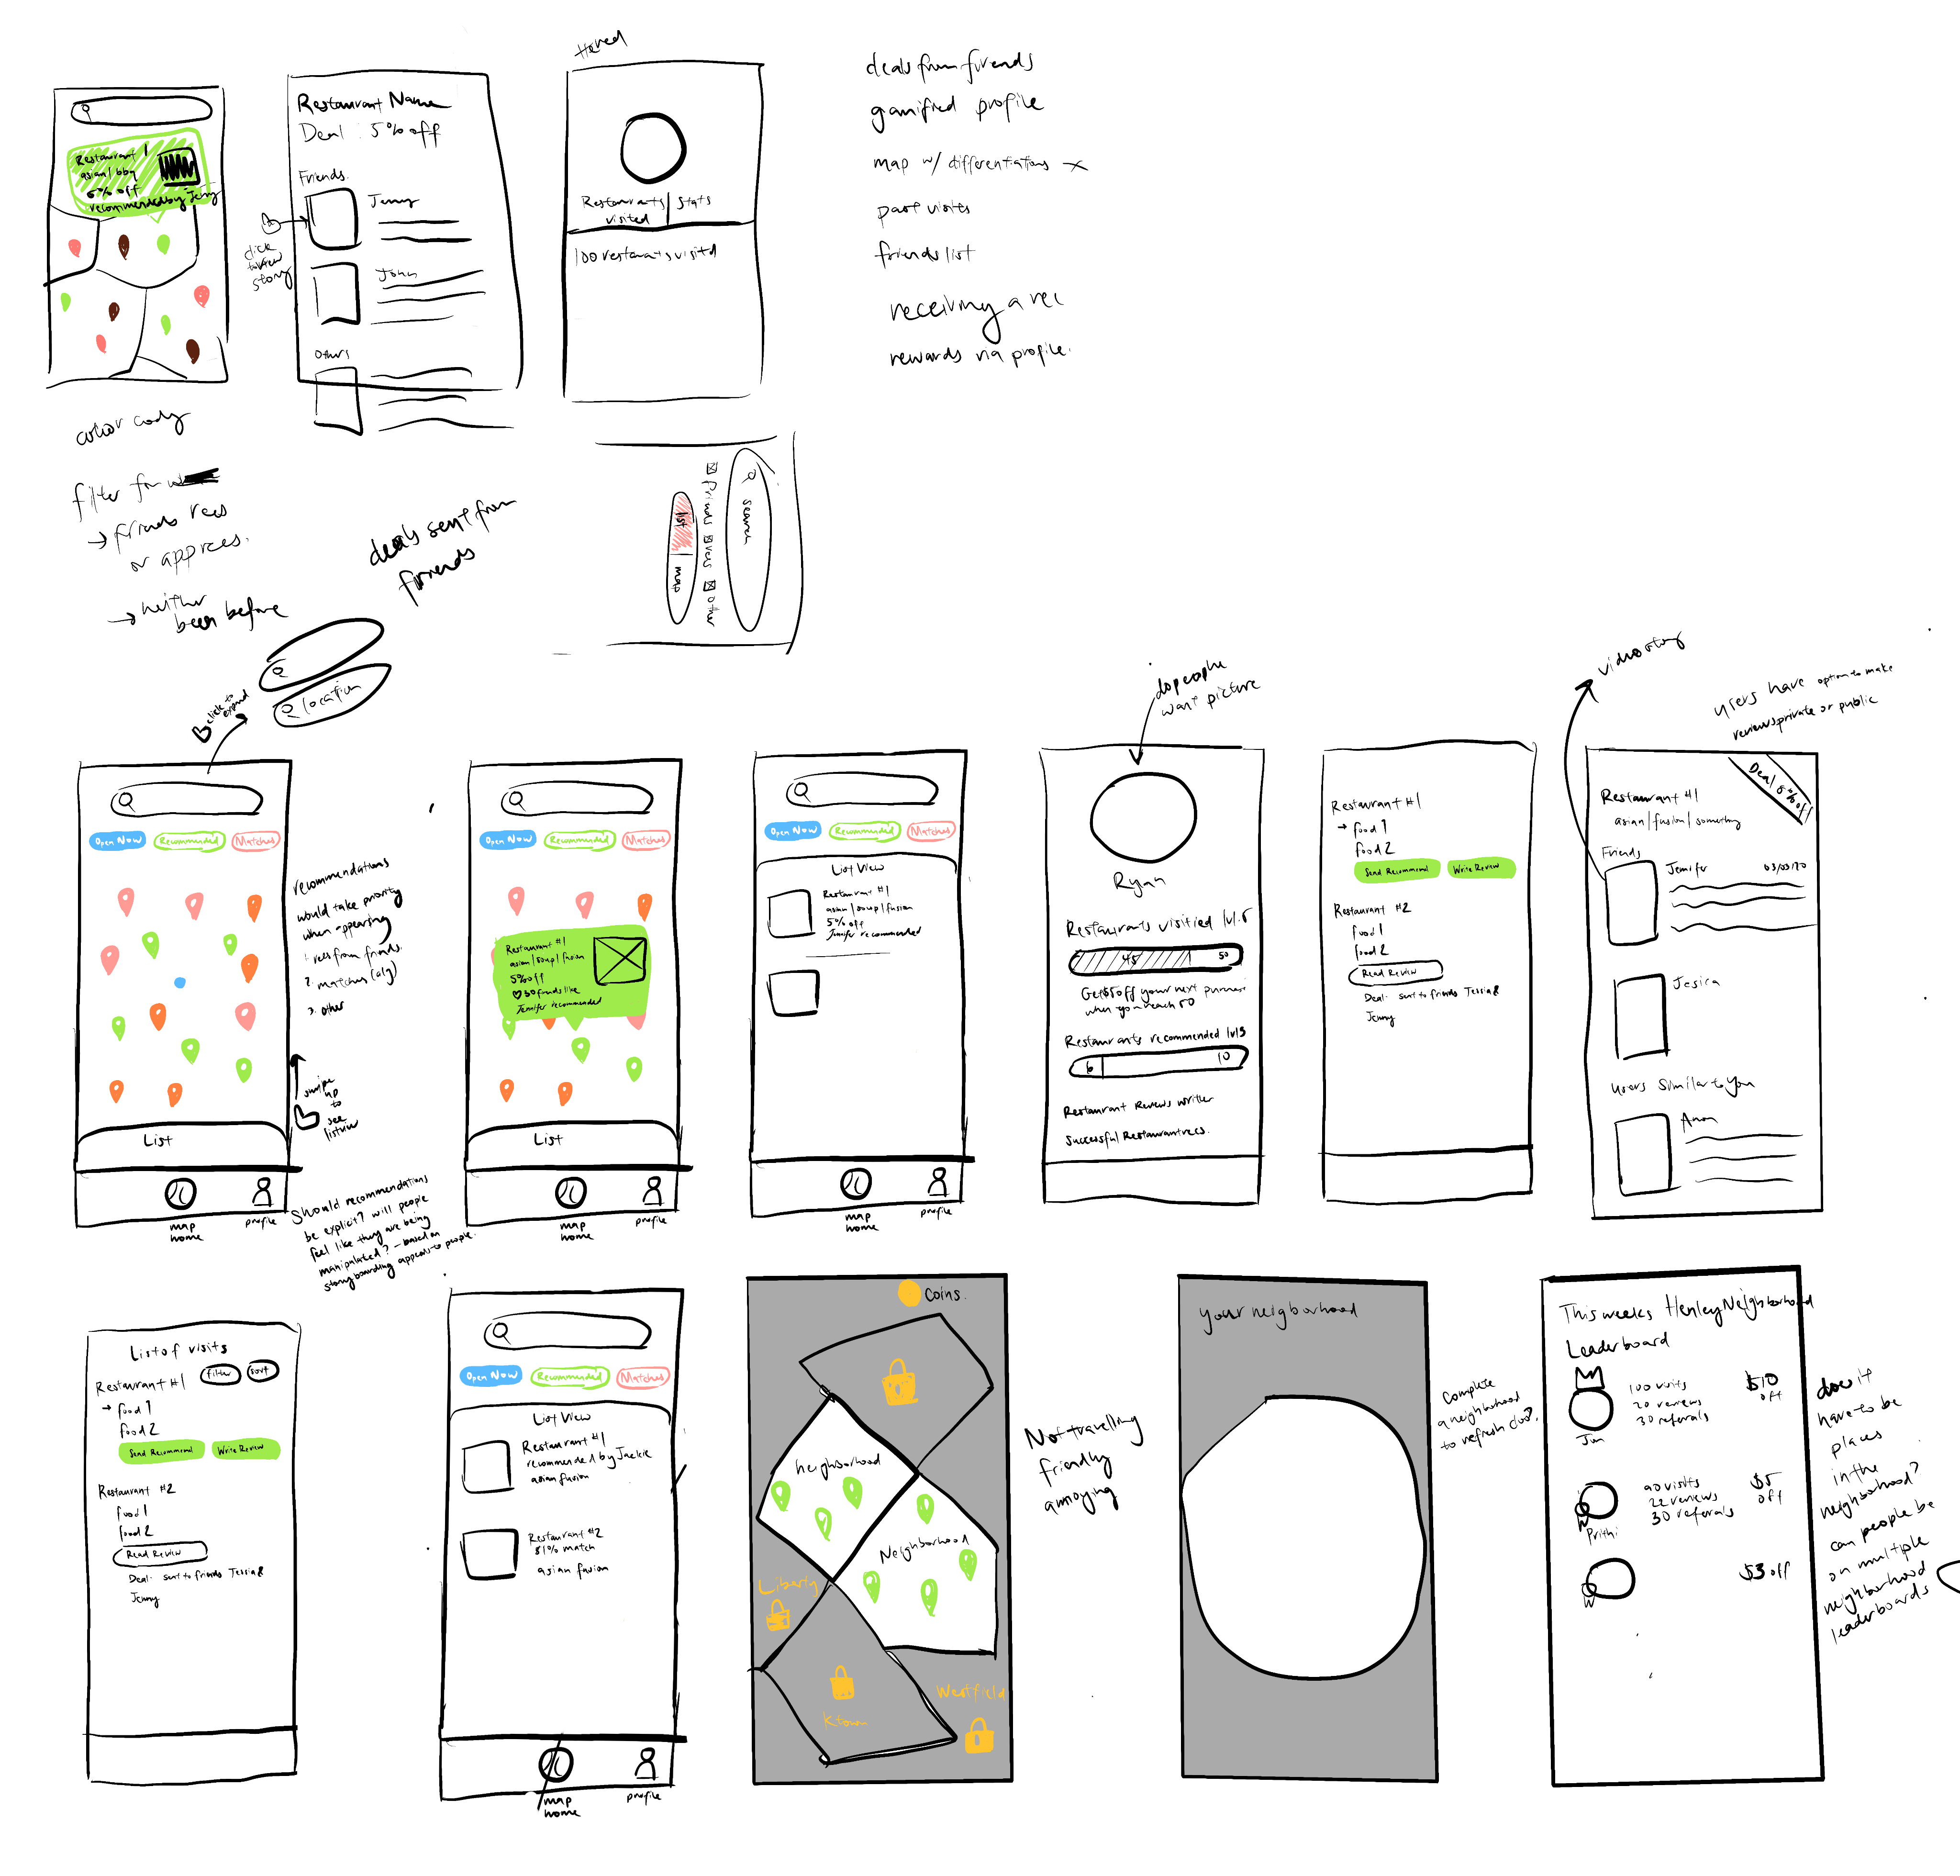 Restaurant 1
asian/bbq
5% off
recommended by Jenny
Restaurant Name
Deal: 5% off
Friends.
Jenny
John
others
click
to view
story
Restaurants visited
Stats
100 restaurants visitd
deals from friends
gamified profile
map w/ differentiations x
past visits
friends list
receiving a rec
rewards via profile.
filter for
→ friends recs
or app recs.
→ neither
been before
deals sent from
friends
search
friends
recs
other
list
map
click to
expand
location
Open Now
Recommended
Matches
List
map
home
profile
recommendations
would take priority
when appearing
1. recs from friends.
2. matches (alg)
3. other
swipe
up
to
see
listview
Should recommendations
be explicit? will people
feel like they are being
manipulated? - based on
storyboarding appeals to people.
Open Now
Recommended
Matches
Restaurant #1
asian/soup/fusion
5% off
30 friends like
Jennifer recommended
List
map
home
profile
Open Now
Recommended
Matches
List View
Restaurant #1
asian/soup/fusion
5% off
Jennifer recommended
map
home
profile
do people
want picture
Ryan
Restaurants visitied lvl.5
45
50
Get $5 off your next purchase
when you reach 50
Restaurants recommended lvl3
6
10
Restaurant Reviews written
Successful Restaurant recs.
Restaurant #1
→ food 1
food 2
Send Recommend
Write Review
Restaurant #2
food 1
food 2
Read Review
Deal: sent to friends Tessia &
Jenny
video story
users have option to make
reviews private or public
Deal 5% off
Restaurant #1
asian/fusion/something
Friends
Jennifer
03/03/20
Jesica
Users Similar to You
Anon
List of visits
filter
sort
Restaurant #1
→ food 1
food 2
Send Recommend
Write Review
Restaurant #2
food 1
food 2
Read Review
Deal: sent to friends Tessia &
Jenny
Open Now
Recommended
Matches
List View
Restaurant #1
recommended by Jackie
asian fusion
Restaurant #2
81% match
asian fusion
map
home
profile
Coins.
Neighborhood
Neighborhood
Liberty
Ktown
Westfield
Not travelling
friendly
annoying
your neigborhood
Complete
a neighborhood
to refresh
This weeks Henley Neighborhood
Leaderboard
100 visits
20 reviews
30 referrals
$10
off
Jun
90 visits
22 reviews
30 referrals
$5
off
Prithi
$3 off
does it
have to be
places
in the
neighborhood?
can people be
on multiple
neighborhood
leaderboards